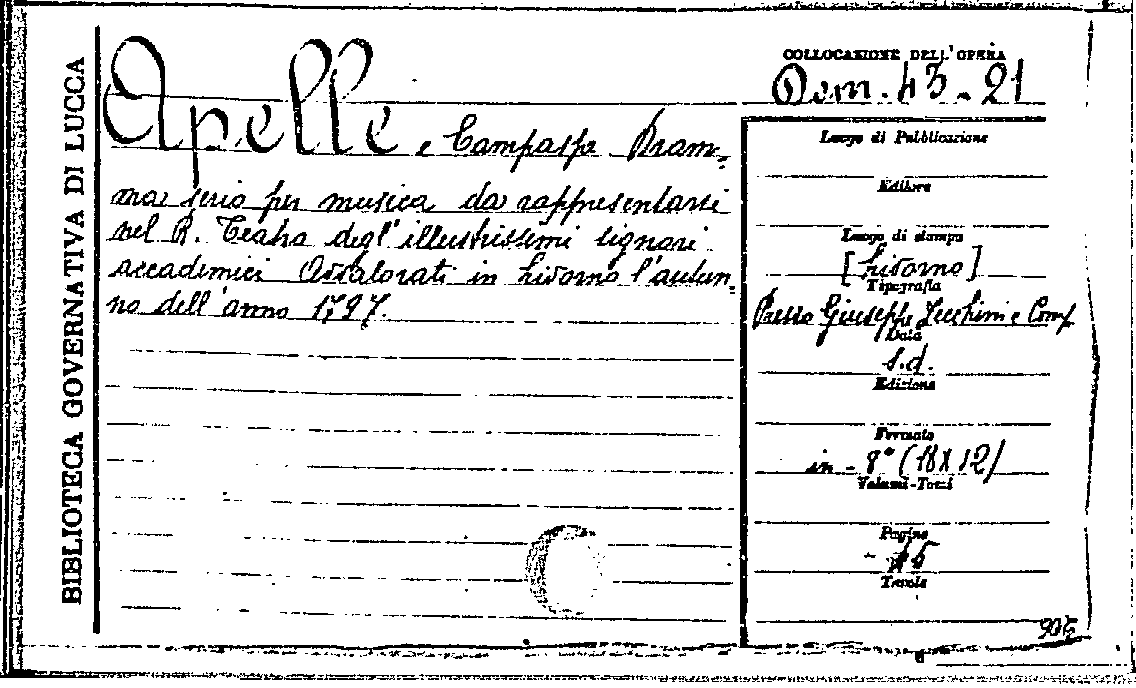 BIBLIOTECA GOVERNATIVA DI LUCCA
Apelle e Campaspe Dram-
ma serio per musica da rappresentarsi
nel R. Teatro degl'illustrissimi signori
accademici Avvalorati in Livorno l'autun-
no dell'anno 1797.
COLLOCAZIONE DELL'OPERA
Dom. 43-21
Luogo di Pubblicazione
Editore
Luogo di stampa
[Livorno]
Tipografia
Presso Giuseppe Zecchini e Comp.
Data
s.d.
Edizione
Formato
in-8° (18X12)
Volumi-Tomi
Pagine
Tavole